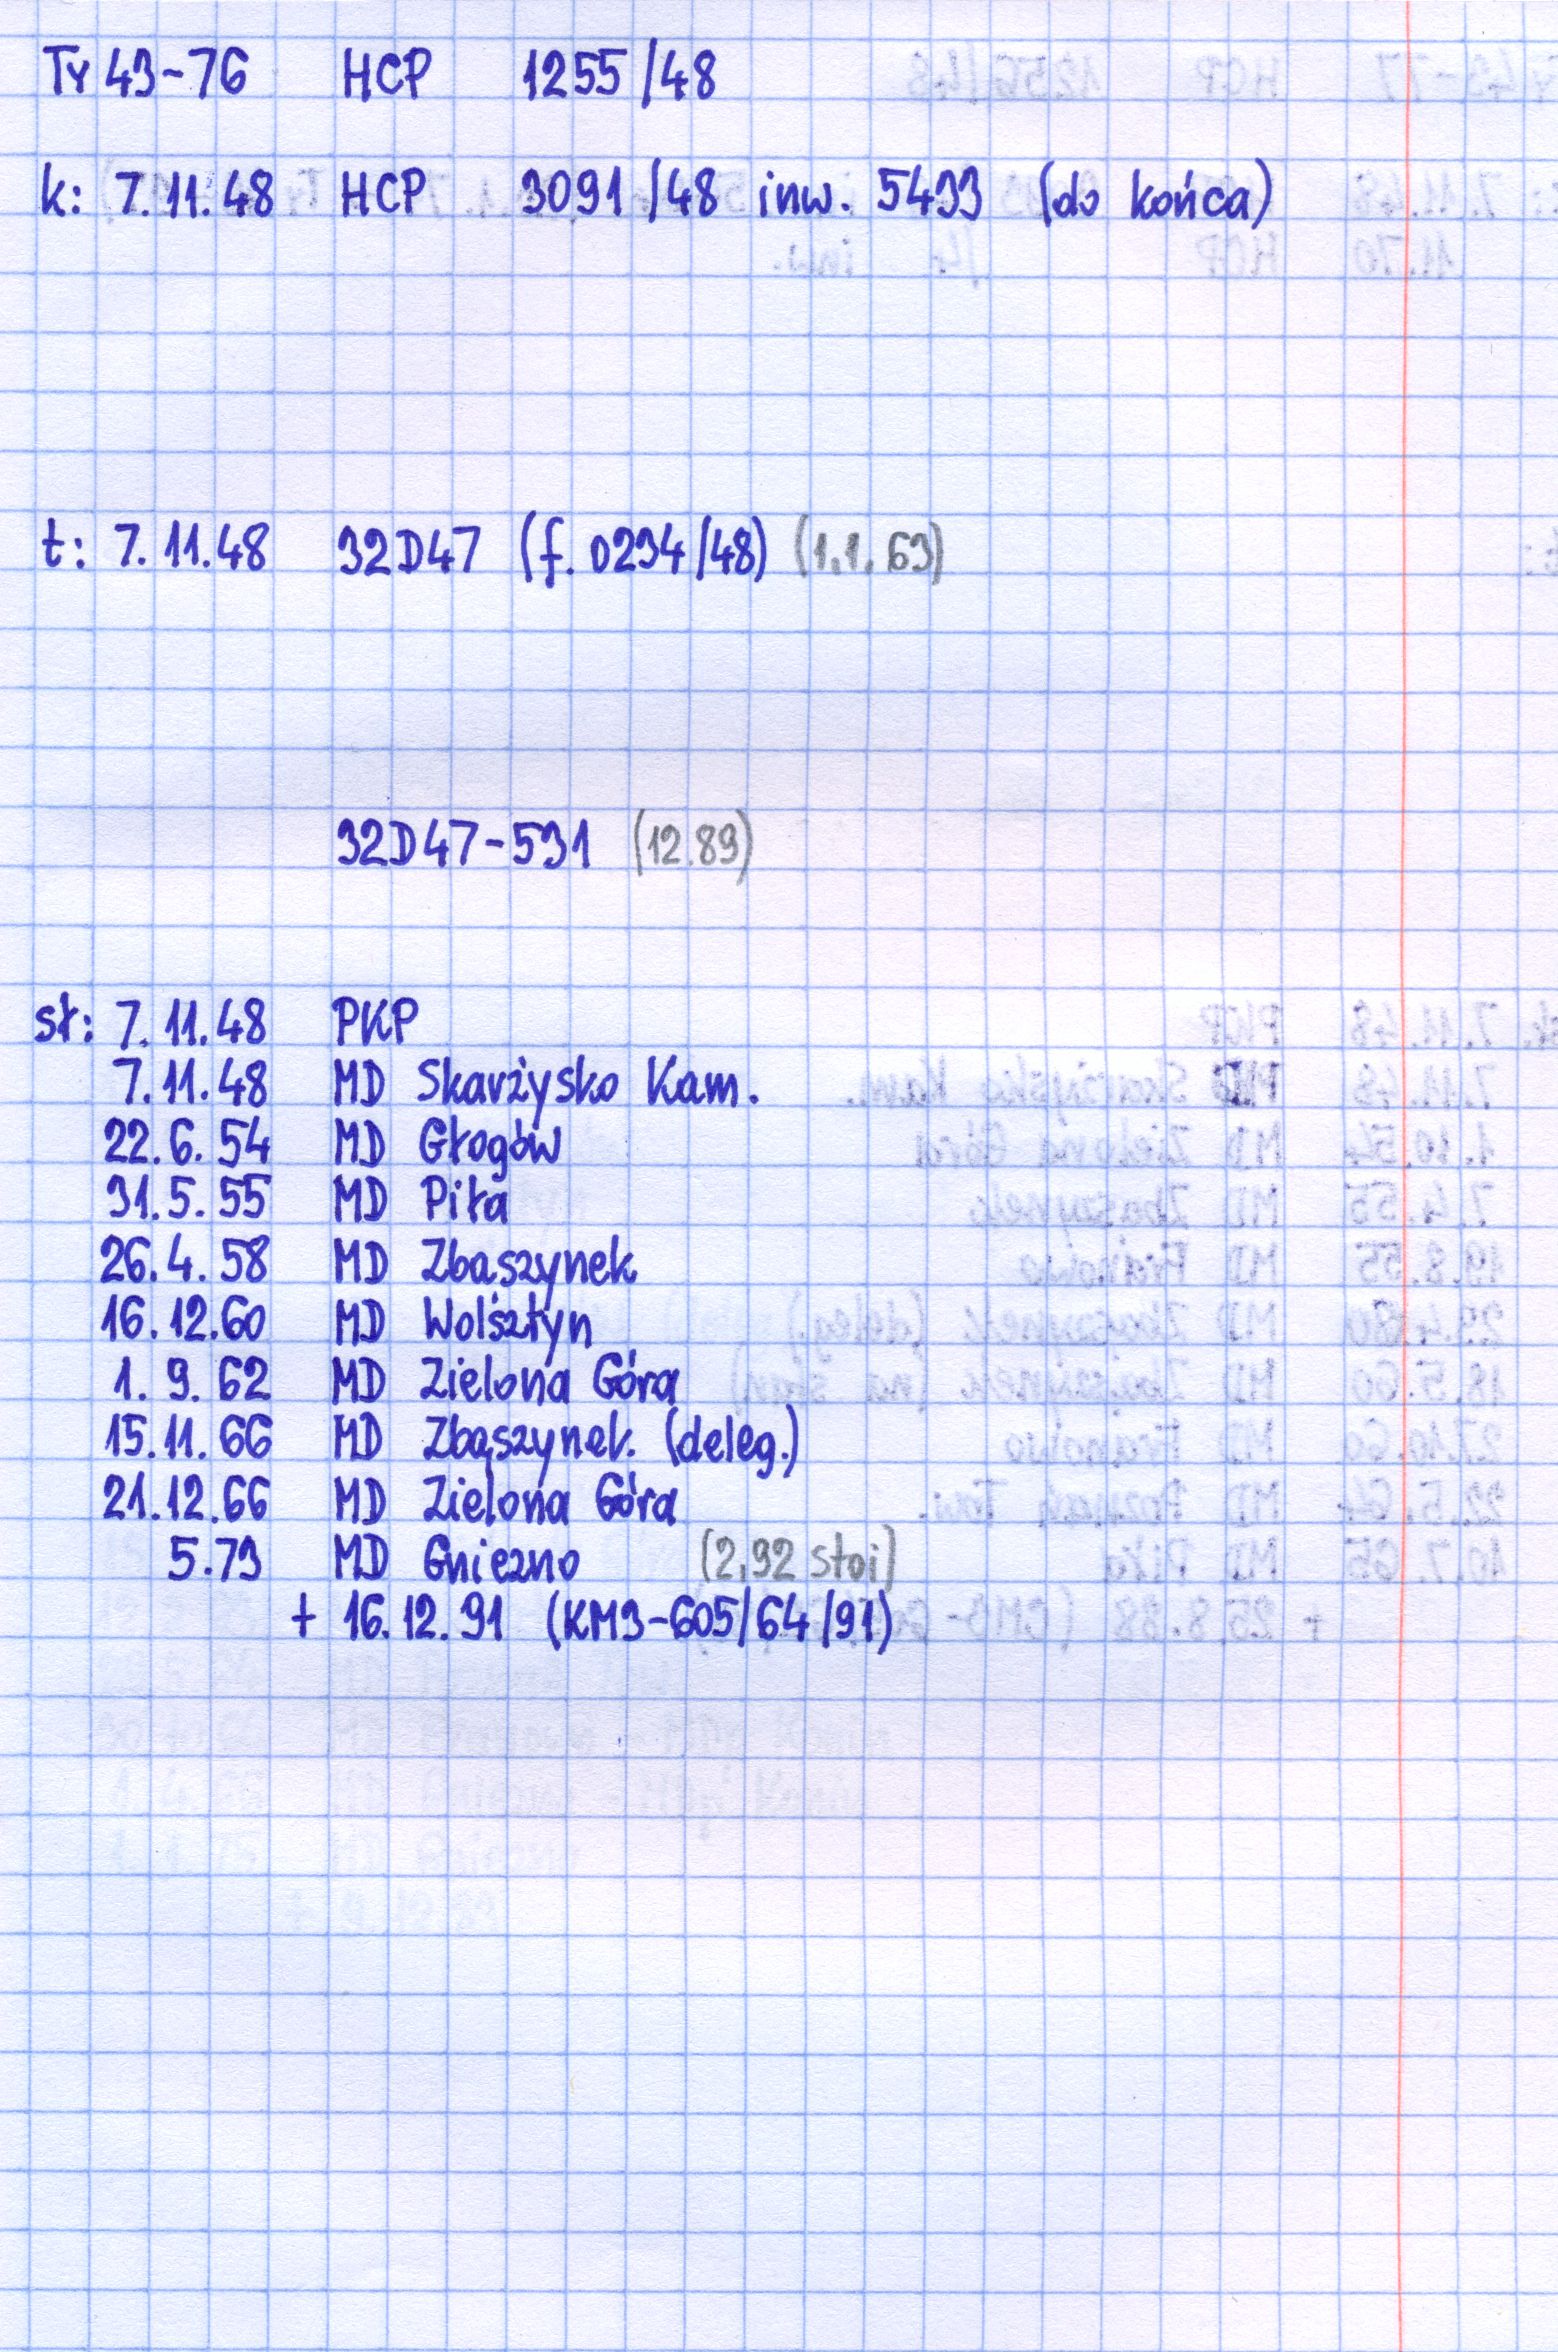 Ty 43-76 HCP 1255/48
k: 7.11.48 HCP 3091/48 inw. 5433 (do końca)
t: 7.11.48 32D47 (f. 0234/48) (1.1.63)
32D47-531 (12.89)
st: 7.11.48 PKP
7.11.48 MD Skarżysko Kam.
22.6.54 MD Głogów
31.5.55 MD Piła
26.4.58 MD Zbąszynek
16.12.60 MD Wolsztyn
1.9.62 MD Zielona Góra
15.11.66 MD Zbąszynek (deleg.)
21.12.66 MD Zielona Góra
5.73 MD Gniezno (2.92 stoi)
+ 16.12.91 (KM3-605/64/91)